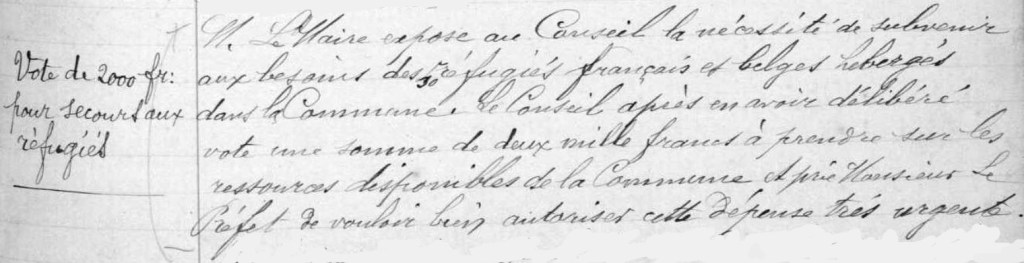 Vote de 2000 fr:
pour secours aux
réfugiés
M. Le Maire expose au Conseil la nécessité de subvenir
aux besoins des réfugiés français et belges hebergés
dans la Commune. Le Conseil après en avoir délibéré
vote une somme de deux mille francs à prendre sur les
ressources disponibles de la Commune et prie Monsieur Le
Préfet de vouloir bien autoriser cette dépense trés urgente.